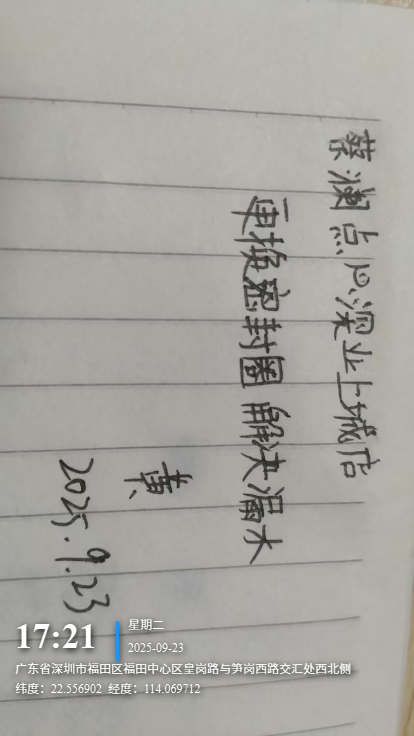 蔡澜点心深业上城店
更换密封圈 解决漏水
黄
2025.9.23
17:21
星期二
2025-09-23
广东省深圳市福田区福田中心区皇岗路与笋岗西路交汇处西北侧
纬度：22.556902 经度：114.069712